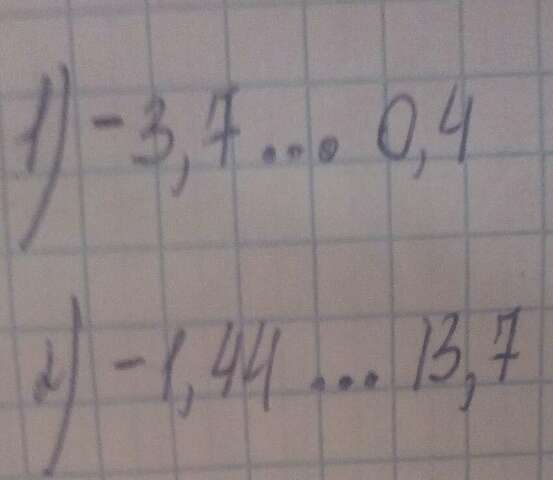 1) -3,7 ... 0,4
2) -1,44 ... 13,7